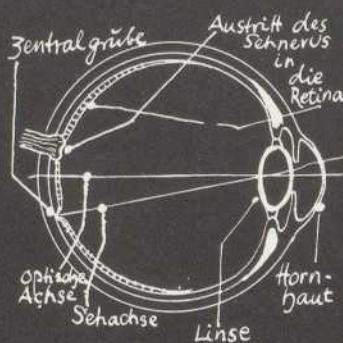 Zentralgrube
Austritt des
Sehnervs
in
die
Retina
optische
Achse
Sehachse
Linse
Horn-
haut